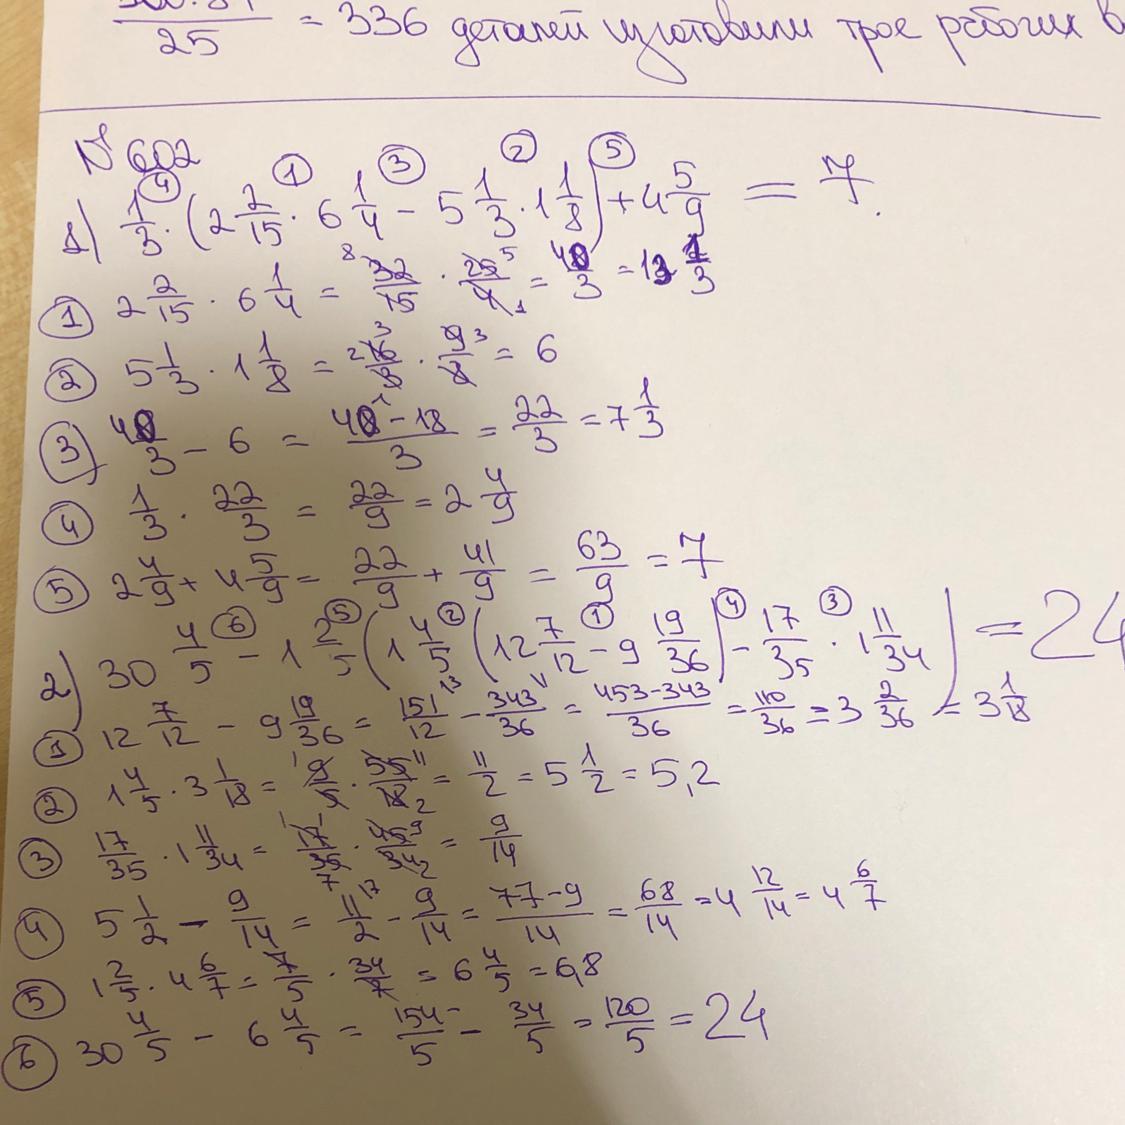 25 = 336 деталей изготовили трое рабочих в
№602
1) 1/3 · (2 2/15 · 6 1/4 − 5 1/3 · 1 1/8) + 4 5/9 = 7.
① 2 2/15 · 6 1/4 = 32/15 · 25/4 = 40/3 = 13 1/3
② 5 1/3 · 1 1/8 = 16/3 · 9/8 = 6
③ 40/3 − 6 = (40 − 18)/3 = 22/3 = 7 1/3
④ 1/3 · 22/3 = 22/9 = 2 4/9
⑤ 2 4/9 + 4 5/9 = 22/9 + 41/9 = 63/9 = 7
2) 30 4/5 − 1 2/5 (1 4/5 (12 7/12 − 9 19/36) − 17/35 · 1 11/34) = 24
① 12 7/12 − 9 19/36 = 151/12 − 343/36 = (453−343)/36 = 110/36 = 3 2/36 = 3 1/18
② 1 4/5 · 3 1/18 = 9/5 · 55/18 = 11/2 = 5 1/2 = 5,2
③ 17/35 · 1 11/34 = 17/35 · 45/34 = 9/14
④ 5 1/2 − 9/14 = 11/2 − 9/14 = (77−9)/14 = 68/14 = 4 12/14 = 4 6/7
⑤ 1 2/5 · 4 6/7 = 7/5 · 34/7 = 6 4/5 = 6,8
⑥ 30 4/5 − 6 4/5 = 154/5 − 34/5 = 120/5 = 24